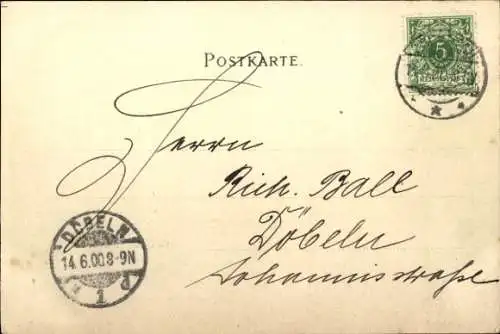 POSTKARTE.
5
REICHSPOST
Herrn
Rich. Ball
Döbeln
Johannisstraße
DÖBELN
14.6.00.8-9N
1 d